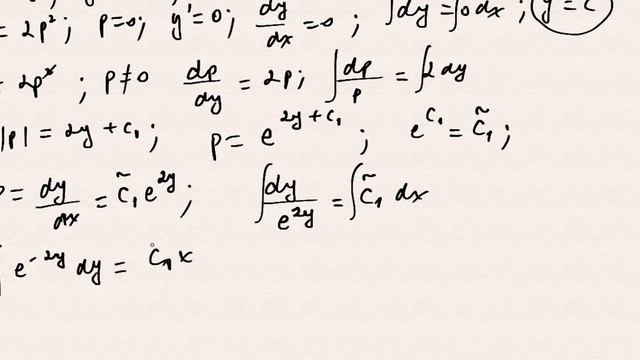 = 2p²; p=0; y'=0; dy/dx=0; ∫dy=∫0dx; y=C
= 2p²; p≠0 dp/dy = 2p; ∫dp/p = ∫2dy
|p| = 2y+C₁; p = e^(2y+C₁); e^(C₁) = C̃₁;
= dy/dx = C̃₁e^(2y); ∫dy/e^(2y) = ∫C̃₁ dx
e^(-2y) dy = C₁x